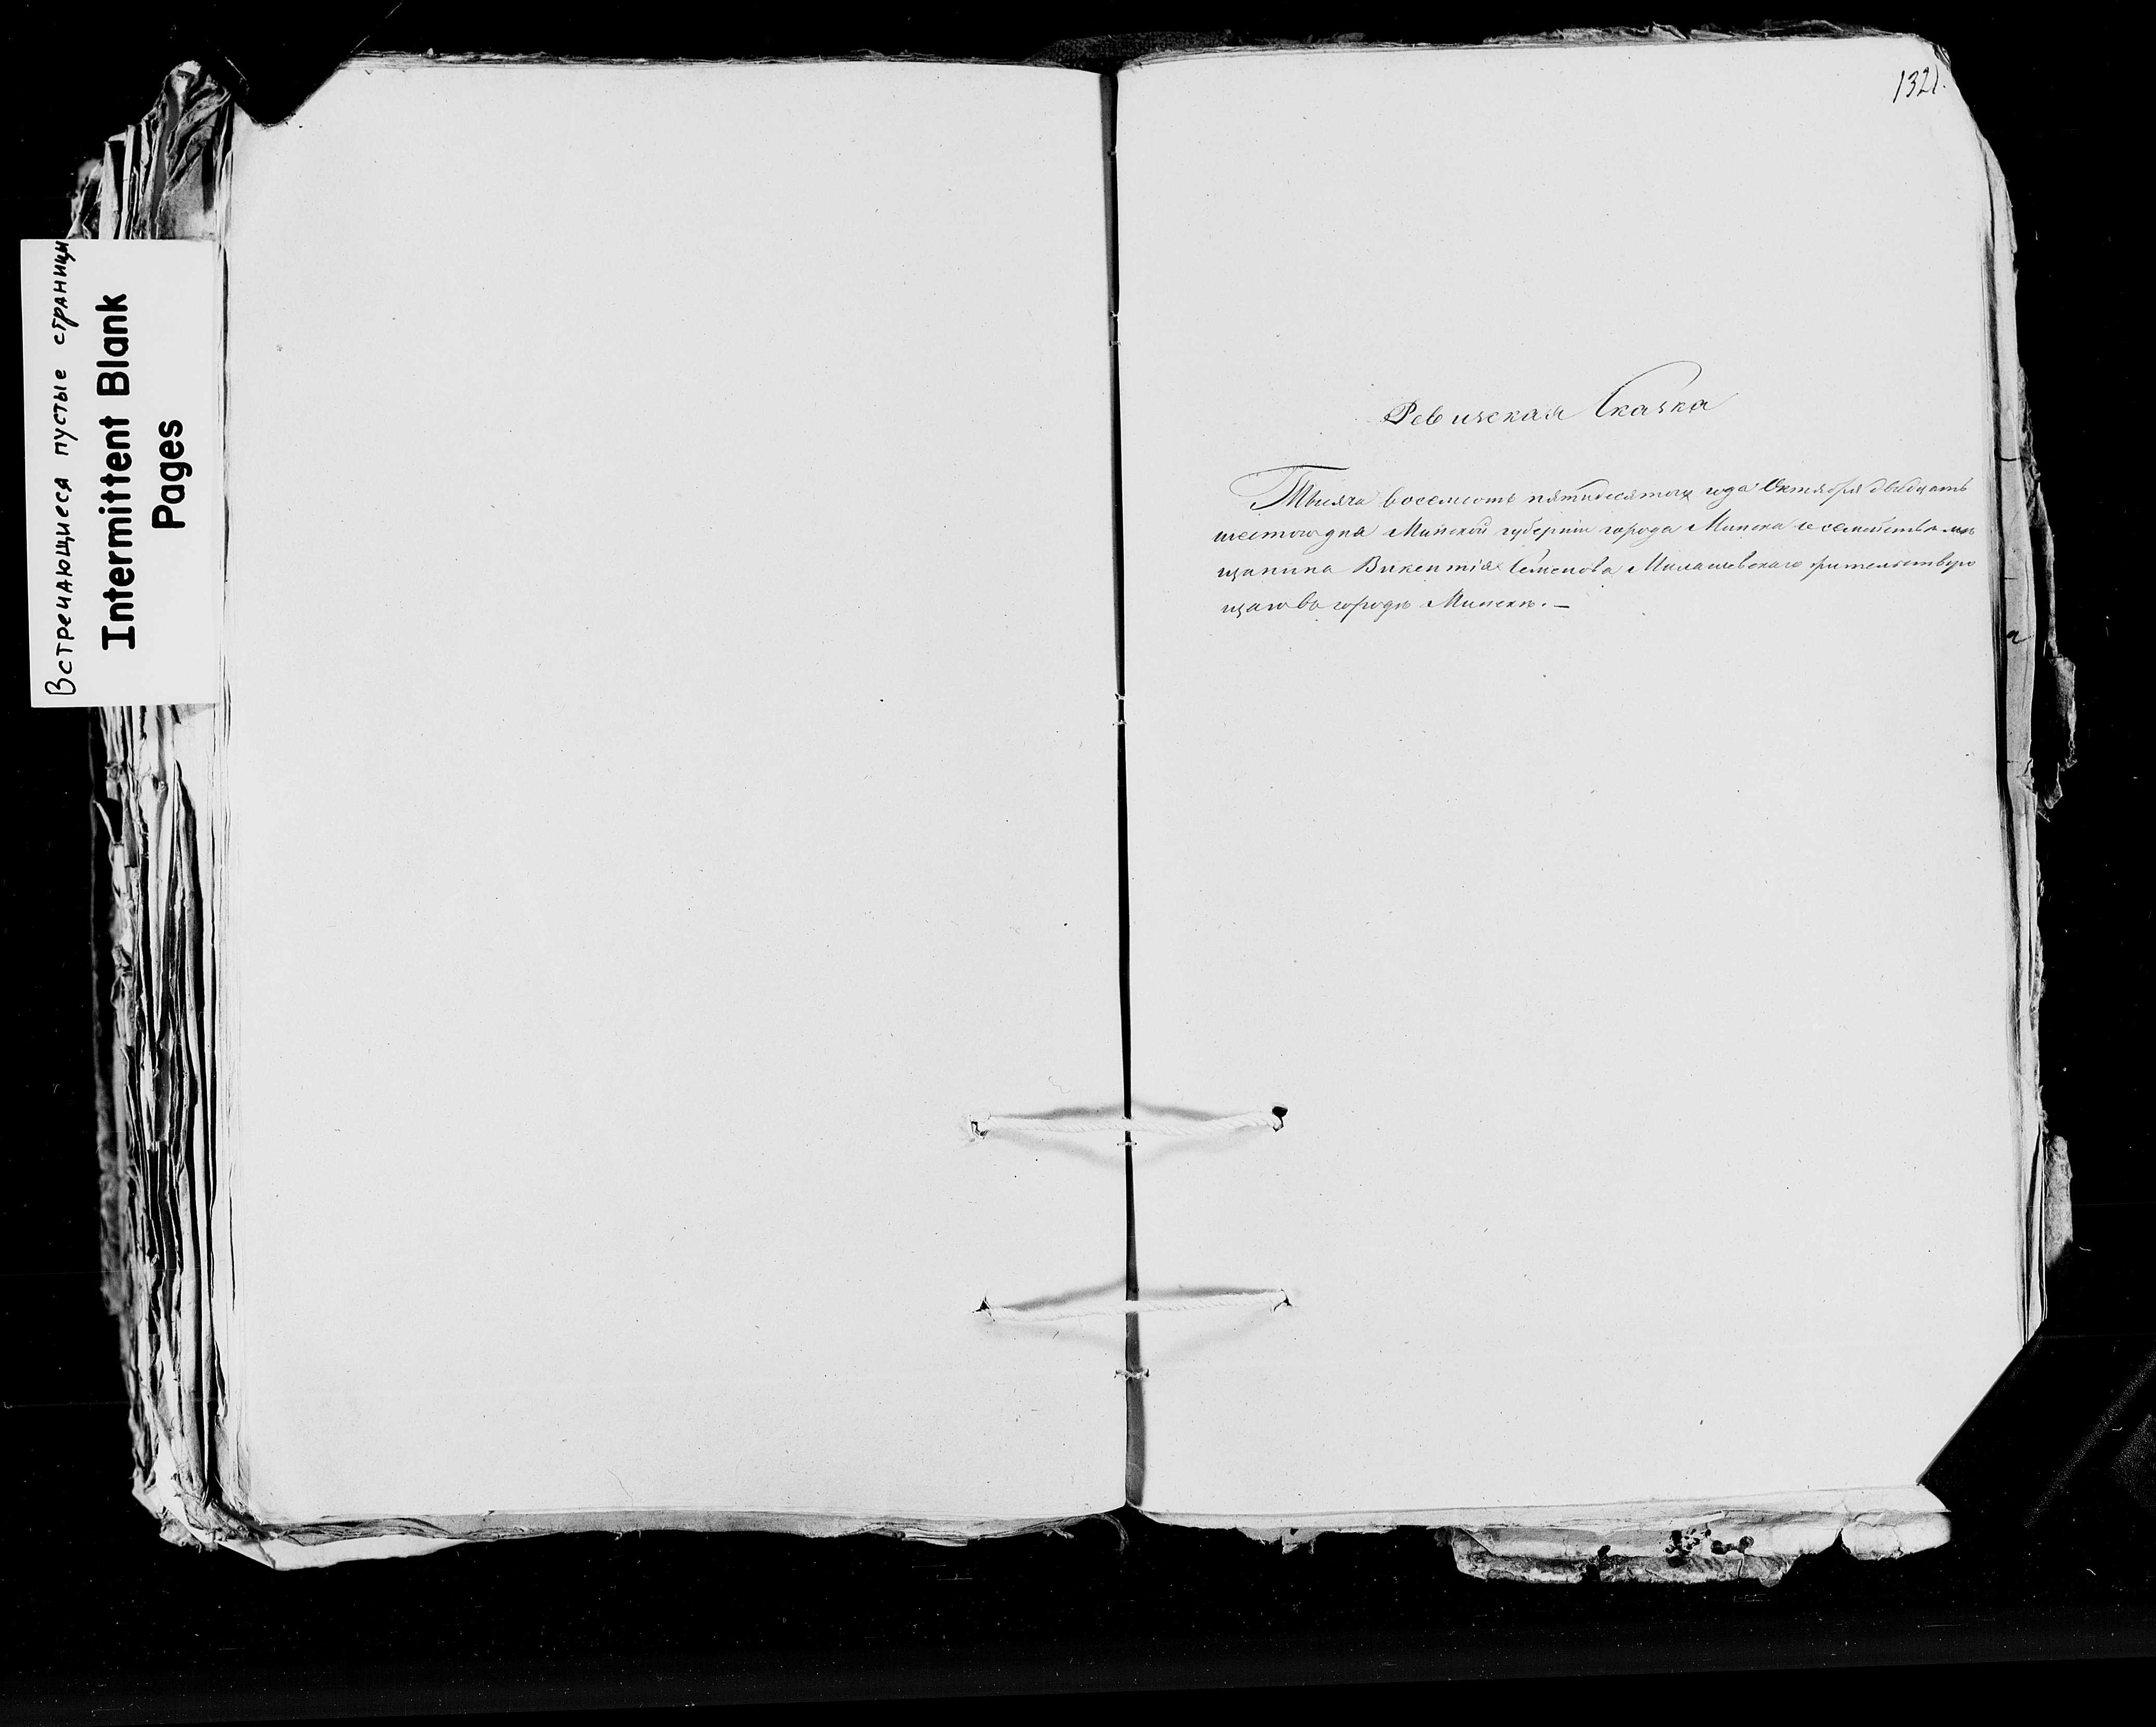 1321.
Встречающиеся пустые страницы
Intermittent Blank
Pages
Ревизская Сказка
Тысяча восемсотъ пятидесятого года Октября двадцать
шестого дня Минской губерніи города Минска о семействѣ мѣ
щанина Викентія Семенова Милашевскаго жительствую
щаго въ городѣ Минскѣ. —